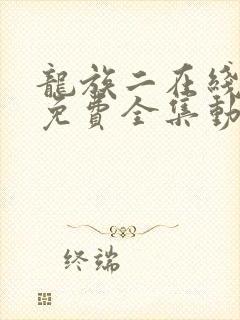 龍族二在綫
免費全集動
終端